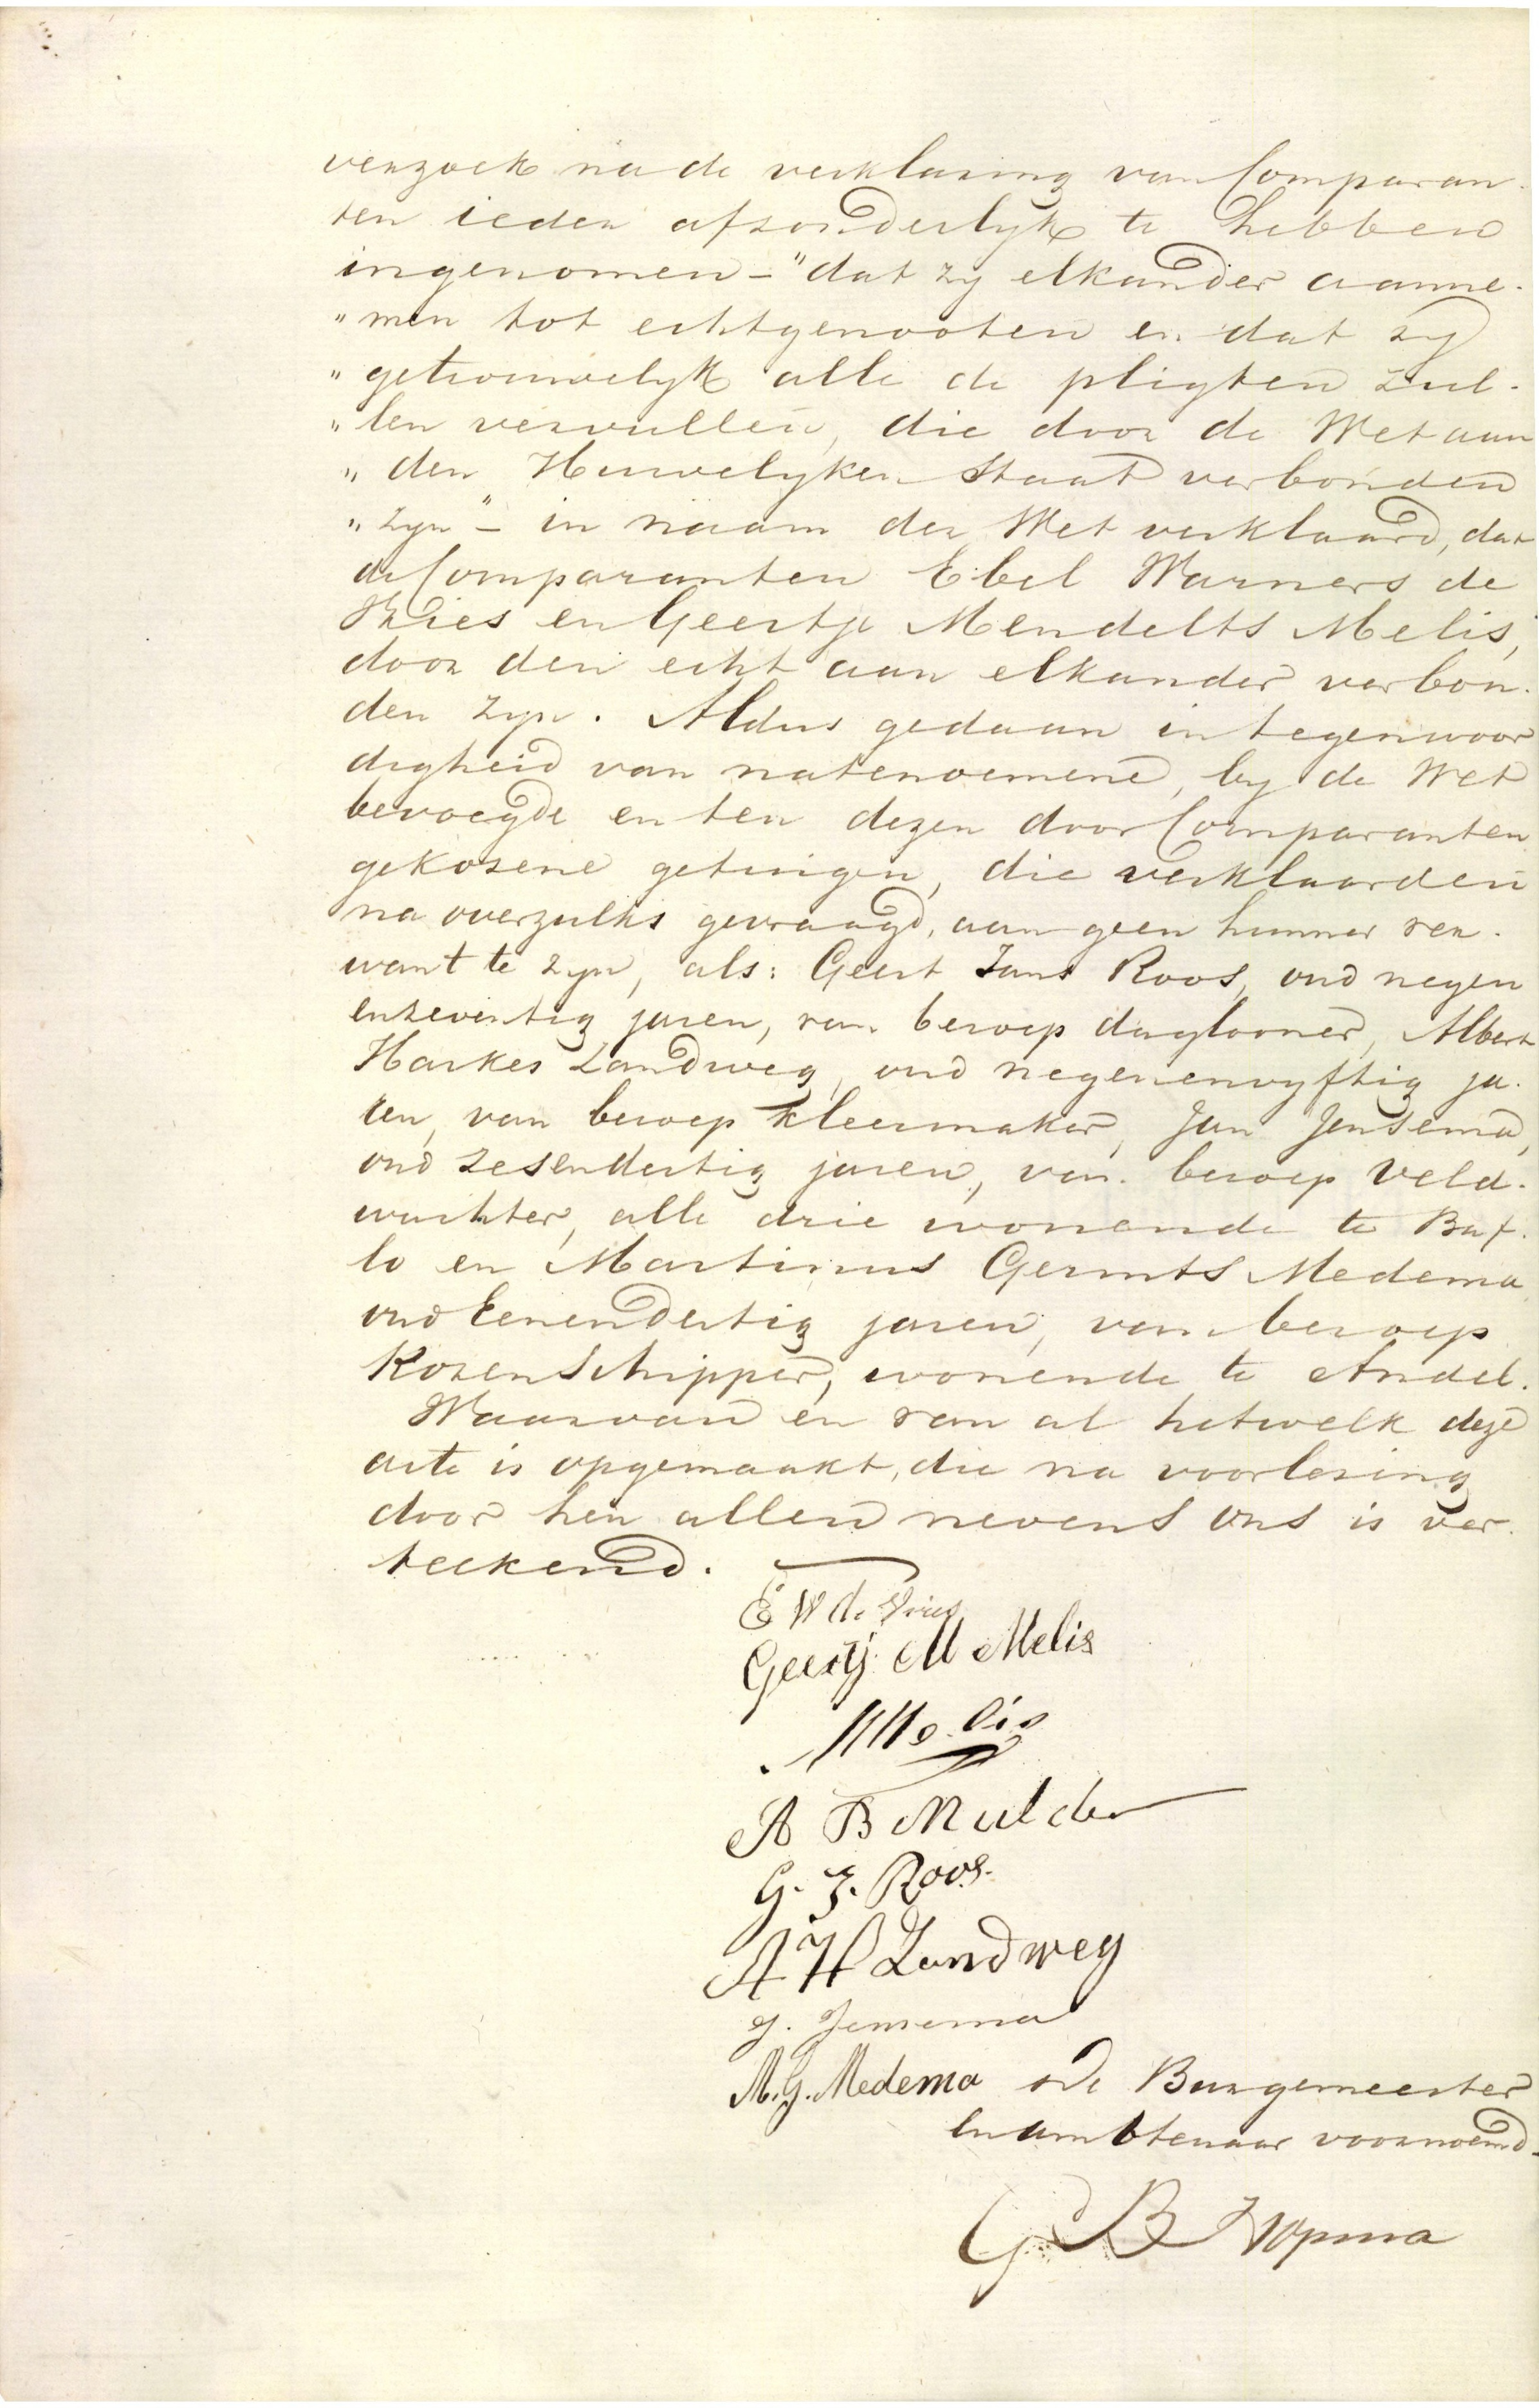 verzoek na de verklaring van Comparan-
ten ieder afzonderlyk te hebben
ingenomen - "dat zy elkander aanne-
"men tot echtgenooten en dat zy
"getrouwelyk alle de pligten zul-
"len vervullen, die door de Wet aan
"den Huwelyken Staat verbonden
"zyn" - in naam der Wet verklaard, dat
de Comparanten Ebel Warners de
Vries en Geertje Mendelts Melis,
door den echt aan elkander verbon-
den zyn. Aldus gedaan in tegenwoor
digheid van natenoemene, by de Wet
bevoegde en ten dezen door Comparanten
gekozene getuigen, die verklaarden
na overzulks gevraagd, aan geen hunner ver-
want te zyn, als: Geert Jans Roos, oud negen
enzeventig jaren, van beroep daglooner, Albert
Harkes Landweg, oud negenenvyftig ja-
ren, van beroep kleermaker, Jan Jensema,
oud zesendertig jaren, van beroep veld-
wachter, alle drie wonende te Baf-
lo en Martinus Geernts Medema
oud eenendertig jaren, van beroep
Korenschipper, wonende te Andel.
Waarvan en van al hetwelk deze
acte is opgemaakt, die na voorlezing
door hen allen nevens ons is ver-
teekend.
E W de Vries
Geertj. M Melis
M Melis
A B Mulder
G. J. Roos.
A H Landweg
J. Jensema
M. G. Medema de Burgemeester
en ambtenaar voornoemd.
G B Hopma